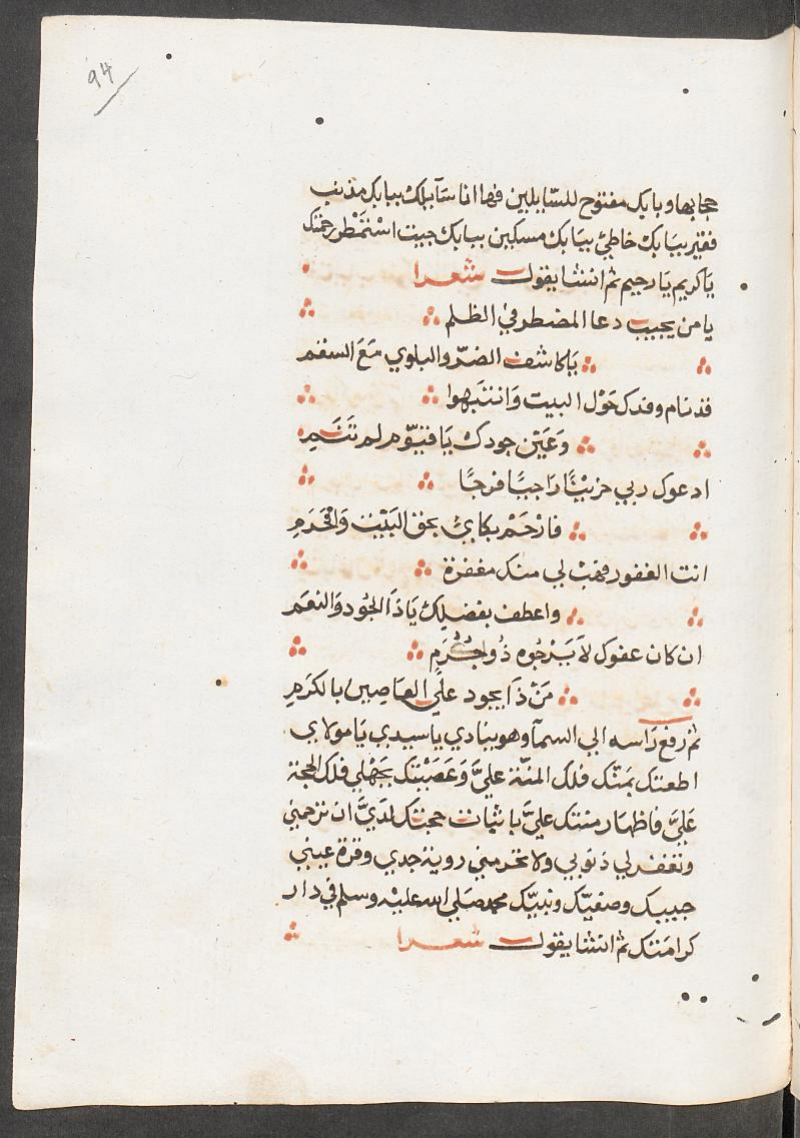 94
حجابها وبابك مفتوح للسّايلين فها انا سَآيلك ببابك مذنب
فقير ببَابك خاطئ ببَابك مسكين ببابك جيت اسْتمْطر رحمتك
يَا كريم يَا رحيم ثم انشا يقول شعرا
يا من يجيب دعا المضطر في الظلم
يَا كاشف الضرّ والبلوي مَعَ السقم
قد نام وفدك حَوْل البيت وَانتبَهوا
وَعَيْن جودك يَا قيّوم لم تَنَمِ
ادعوك ربي حزينًا رَاجيًا فرجًا
فارْحَمْ بكايَ بحق البَيْت وَالحَرَمِ
انت الغفور فهبْ لي منك مغفرة
واعطف بفضلك يَا ذَا الجُود وَالنعَم
ان كان عفوك لَا يَرْجُوه ذُو جُرْمٍ
مَنْ ذَا يجود علَي العَاصِين بالكرَمِ
ثم رفع رَاسه الي السمآ وهو ينادي يا سيدي يَا مولاي
اطعتك بمَنّك فلك المنّة عليَّ وَعَصَيْتك بجَهْلي فلك الحجة
عَليَّ فاظهَار منتك عليَّ باثبات حجتك لديَّ ان ترحمني
وتغفر لي ذنوبي ولا تحرمني روية جدي وقرة عيني
حبيبك وصفيّك ونبيّك محمد صَلي الله عليْه وسلم في دار
كرامَتك ثم انشا يقول شعرا